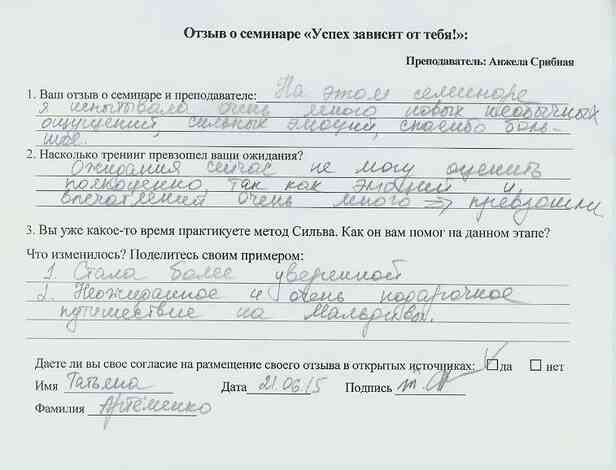 Отзыв о семинаре «Успех зависит от тебя!»:
Преподаватель: Анжела Срибная
1. Ваш отзыв о семинаре и преподавателе: На этом семинаре
я испытывала очень много новых необычных
ощущений, сильных эмоций, спасибо боль-
шое.
2. Насколько тренинг превзошел ваши ожидания?
Ожидания сейчас не могу оценить
полноценно, так как эмоций и
впечатлений очень много => превзошли
3. Вы уже какое-то время практикуете метод Сильва. Как он вам помог на данном этапе?
Что изменилось? Поделитесь своим примером:
1. Стала более уверенной
2. Неожиданное и очень подарочное
путишествие на Мальдивы.
Даете ли вы свое согласие на размещение своего отзыва в открытых источниках: ☑ да ☐ нет
Имя Татьяна Дата 21.06.15 Подпись
Фамилия Артёменко